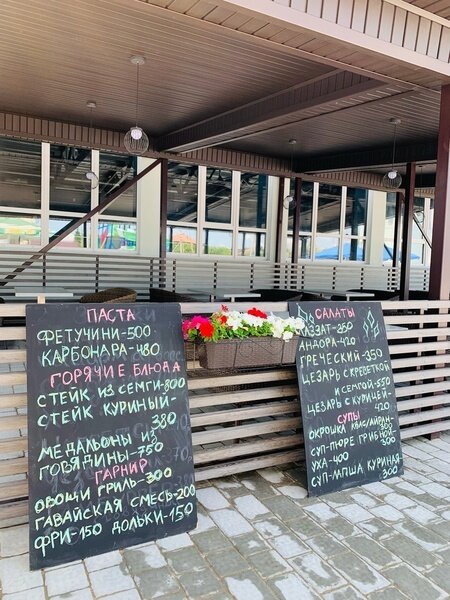 ПАСТА
ФЕТУЧИНИ-500
КАРБОНАРА-480
ГОРЯЧИЕ БЛЮДА
СТЕЙК ИЗ СЕМГИ-800
СТЕЙК КУРИНЫЙ-
380
МЕДАЛЬОНЫ ИЗ
ГОВЯДИНЫ-750
ГАРНИР
ОВОЩИ ГРИЛЬ-300
ГАВАЙСКАЯ СМЕСЬ-200
ФРИ-150 ДОЛЬКИ-150
САЛАТЫ
АНДОРА-420
ГРЕЧЕСКИЙ-350
ЦЕЗАРЬ С КРЕВЕТКОЙ
И СЕМГОЙ-550
ЦЕЗАРЬ С КУРИЦЕЙ-
420
СУПЫ
ОКРОШКА КВАС/АЙРАН-
300
СУП-ПЮРЕ ГРИБНОЙ-
300
УХА-400
СУП-ЛАПША КУРИНАЯ
300